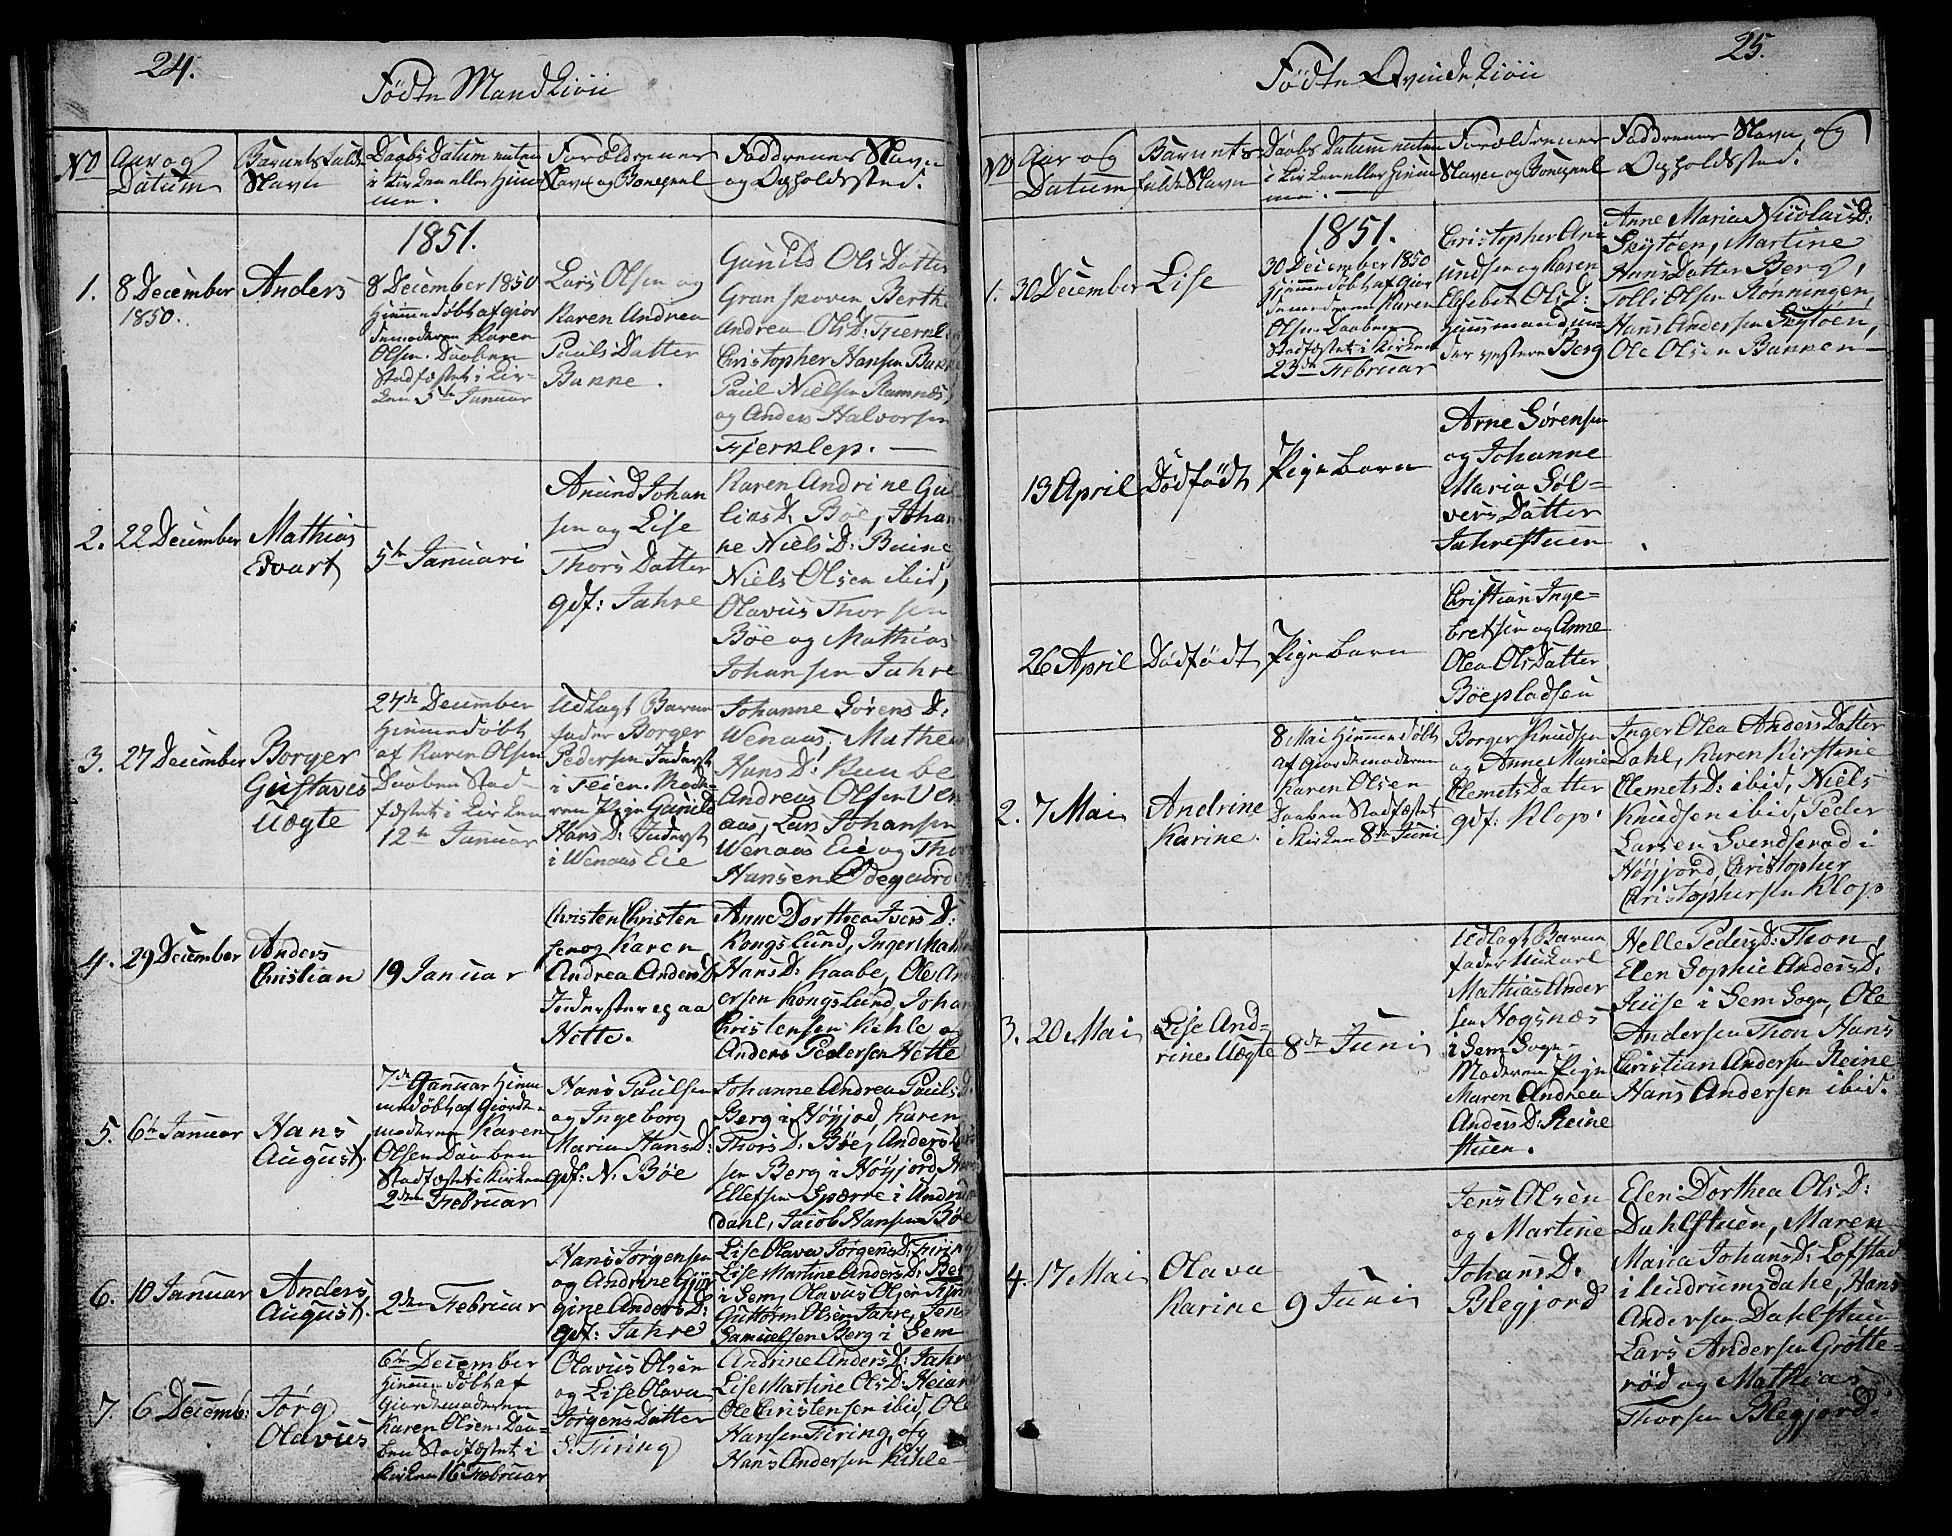 24.
Fødte Mandkiön
No
Aar og
Datum
Barnets fulde
Navn
Daabs Datum enten
i Kirken eller Hiem
me.
Forældrenes
Navn og Borgerl
Faddrenes Navn
og Opholdsted.
1851.
1.
8 December
1850.
Anders
8 December 1850
Hiemmedøbt af gior
demoderen Karen
Olsen. Daaben
Stadfæstet i Kir-
ken 5te Januar
Lars Olsen og
Karen Andrea
Pauls Datter
Banne.
Gunild Ols Datter
Andrea Ols D:
Christopher Hansen
Paul Nielsen Ramnæs
og Anders Halvorsen
Fierklep. —
2.
22 December
Mathias
Evart
5te Januari
Anund Johan
sen og Lise
Thors Datter
gdf: Jahre
Karen Andrine
D. Böe, Johan
ne Niels D:
Niels Olsen ibid,
Olavus Thorsen
Böe og Mathias
Johansen Jahre
3.
27 December
Borger
Gustavus
Uægte
27de December
Hiemmedøbt
af Karen Olsen
Daaben Stad-
fæstet i Kirken
12te Januar
Udlagt Barne
fader Borger
Pedersen Inderst
i Feien. Mode-
ren Pige Gunild
Hans D: Inderst
i Wenaas Eie
Johanne Sörens D:
Wenaas, Mathea
Hans D:
Andreas Olsen Wen
aas, Lars Johansen
Wenaas Eie og Thor
Hansen Ödegaarden
4.
29 December
Anders
Christian
19 Januar
Christen Christen
sen og Karen
Andrea Anders D
Inderster paa
Hotte.
Anne Dorthea Ivers D:
Kongslund, Inger
Hans D: Kaabe, Ole An
ersen Kongslund, Johan
Christensen Kihle og
Anders Pedersen Hotte
5.
6te Januar
Hans
August.
7de Januar Hiem
medøbt af Giorde-
moderen Karen
Olsen Daaben
Stadfæstet i Kirken
2den Februar
Hans Paulsen
og Ingeborg
Maria Hans D:
gdf: N. Böe
Johanne Andrea Pauls D:
Berg i Höyjord, Karen
Thors D: Böe, Anders
sen Berg i Höyjord,
Ellefsen Sperre i Andebu
dahl, Jacob Hansen Böe
6.
10 Januar
Anders
August.
2den Februar
Hans Jörgensen
og Andrine
gine Anders D:
gdf: Jahre
Lise Olava Jörgens D: Firing
Lise Martine Anders D: Berg
i Sem, Olavus
Guttorm Olsen Jahre, Jens
Samuelsen Berg i Sem
7.
6 Decemb:
Jörg
Olavus
6te December
Hiemmedøbt af
Giordemoderen
Karen Olsen. Daa-
ben Stadfæstet i
Kirken 16 Februar
Olavus Olsen
og Lise Olava
Jörgens Datter
S. Firing
Andrine Anders D: Jahre
Lise Martine Ols D:
Ole Christensen ibid, Ole
Hansen Firing, og
Hans Andersen Kihle
25.
Fødte Qvindekiön
No
Aar og
Datum
Barnets
fulde Navn
Daabs Datum enten
i Kirken eller Hiem
me.
Forældrenes
Navn og Borgerl
Faddrenes Navn og
Opholdsted.
1851.
1.
30 December
Lise
30 December 1850
Hiemmedøbt af Gior
demoderen Karen
Olsen Daaben
Stadfæstet i Kirken
23de Februar
Christopher An-
undsen og Karen
Elsebet Ols D:
Huusmand un-
der vestern Berg
Anne Maria Nicolais D:
Skytöen, Martine
Hans Datter Berg,
Tolli Olsen Rönningen,
Hans Andersen Skytöen,
Ole Olsen Bannen —
13 April
Dødfødt
Pigebarn
Arne Sörensen
og Johanne
Maria Söl-
vers Datter
Jahrestuen
26 April
Dødfødt
Pigebarn
Christian Inge-
bretsen og Anne
Olea Ols Datter
Böepladsen
2.
7 Mai
Andrine
Karine.
8 Mai Hiemmedøbt
af Giordemoderen
Karen Olsen
Daaben Stadfæstet
i Kirken 8de Juni
Borger Knudsen
og Anne Marie
Clemets Datter
gdf: Klop
Inger Olea Anders Datter
Dahl, Karen Kirstine
Clemets D: ibid, Niels
Knudsen ibid, Peder
Larsen Svendserød i
Höyjord, Christopher
Christophersen Klop.
3.
20 Mai
Lise And-
rine Uægte
8de Juni
Udlagt Barne
fader Unkarl
Mathias Ander
sen Hogsnæs
i Sem Sogn.
Moderen Pige
Maren Andrea
Anders D: Reine
stuen.
Helle Peders D: Thon,
Elen Sophie Anders D:
i Sem Sogn, Ole
Andersen Thon Hans
Christian Andersen Reine
Hans Andersen ibid.
4.
17 Mai
Olava
Karine
9 Juni
Jens Olsen
og Martine
Johans D:
Blegjord
Elen Dorthea Ols D:
Dahlstuen, Maren
Maria Johans D: Lofstad
i Undrumsdahl, Hans
Andersen Dahlstuen
Lars Andersen Grötte-
röd og Mathias
Thorsen Blegjord.